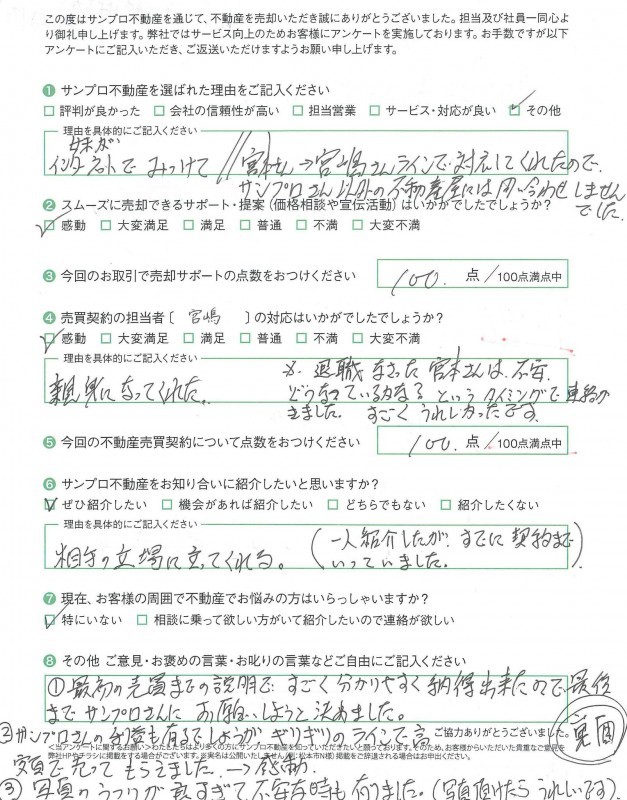 この度はサンプロ不動産を通じて、不動産を売却いただき誠にありがとうございました。担当及び社員一同心よ
り御礼申し上げます。弊社ではサービス向上のためお客様にアンケートを実施しております。お手数ですが以下
アンケートにご記入いただき、ご返送いただけますようお願い申し上げます。
❶ サンプロ不動産を選ばれた理由をご記入ください
□ 評判が良かった □ 会社の信頼性が高い □ 担当営業 □ サービス・対応が良い ☑ その他
理由を具体的にご記入ください
妹が
インターネットで みつけて // 宮本さん→宮嶋さんラインで対応してくれたので、
サンプロさん以外の不動産屋には問い合わせしません
でした。
❷ スムーズに売却できるサポート・提案（価格相談や宣伝活動）はいかがでしたでしょうか？
☑ 感動 □ 大変満足 □ 満足 □ 普通 □ 不満 □ 大変不満
❸ 今回のお取引で売却サポートの点数をおつけください 100. 点 / 100点満点中
❹ 売買契約の担当者〔 宮嶋 〕の対応はいかがでしたでしょうか？
☑ 感動 □ 大変満足 □ 満足 □ 普通 □ 不満 □ 大変不満
理由を具体的にご記入ください
親身になってくれた。
※ 退職なさった宮本さんは、不安、
どうなっているかなぁというタイミングで連絡が
きました。 すごくうれしかったです。
❺ 今回の不動産売買契約について点数をおつけください 100. 点 / 100点満点中
❻ サンプロ不動産をお知り合いに紹介したいと思いますか？
☑ ぜひ紹介したい □ 機会があれば紹介したい □ どちらでもない □ 紹介したくない
理由を具体的にご記入ください
相手の立場に立ってくれる。
（一人紹介したが、すでに契約まで
いっていました。）
❼ 現在、お客様の周囲で不動産でお悩みの方はいらっしゃいますか？
☑ 特にいない □ 相談に乗って欲しい方がいて紹介したいので連絡が欲しい
❽ その他 ご意見・お褒めの言葉・お叱りの言葉などご自由にご記入ください
①最初の売買までの説明で、すごく分かりやすく納得出来たので、最後
までサンプロさんに お願いしようと決めました。
ご協力ありがとうございました。
②サンプロさんの利益も有るでしょうがギリギリのラインで高
裏面
＜当アンケートに関するお願い＞わたしたちはより多くの方にサンプロ不動産を知っていただきたいと願っております。そのため、お客様からいただいた貴重なご意見を
弊社HPやチラシに掲載をする場合がございます。※実名は公開いたしません（例：松本市N様）掲載をご辞退される場合はお申出ください。
額で売ってもらえました。→感動
③写真のうつりが良すぎて不安な時も有りました。（写真頂けたらうれしいです）。